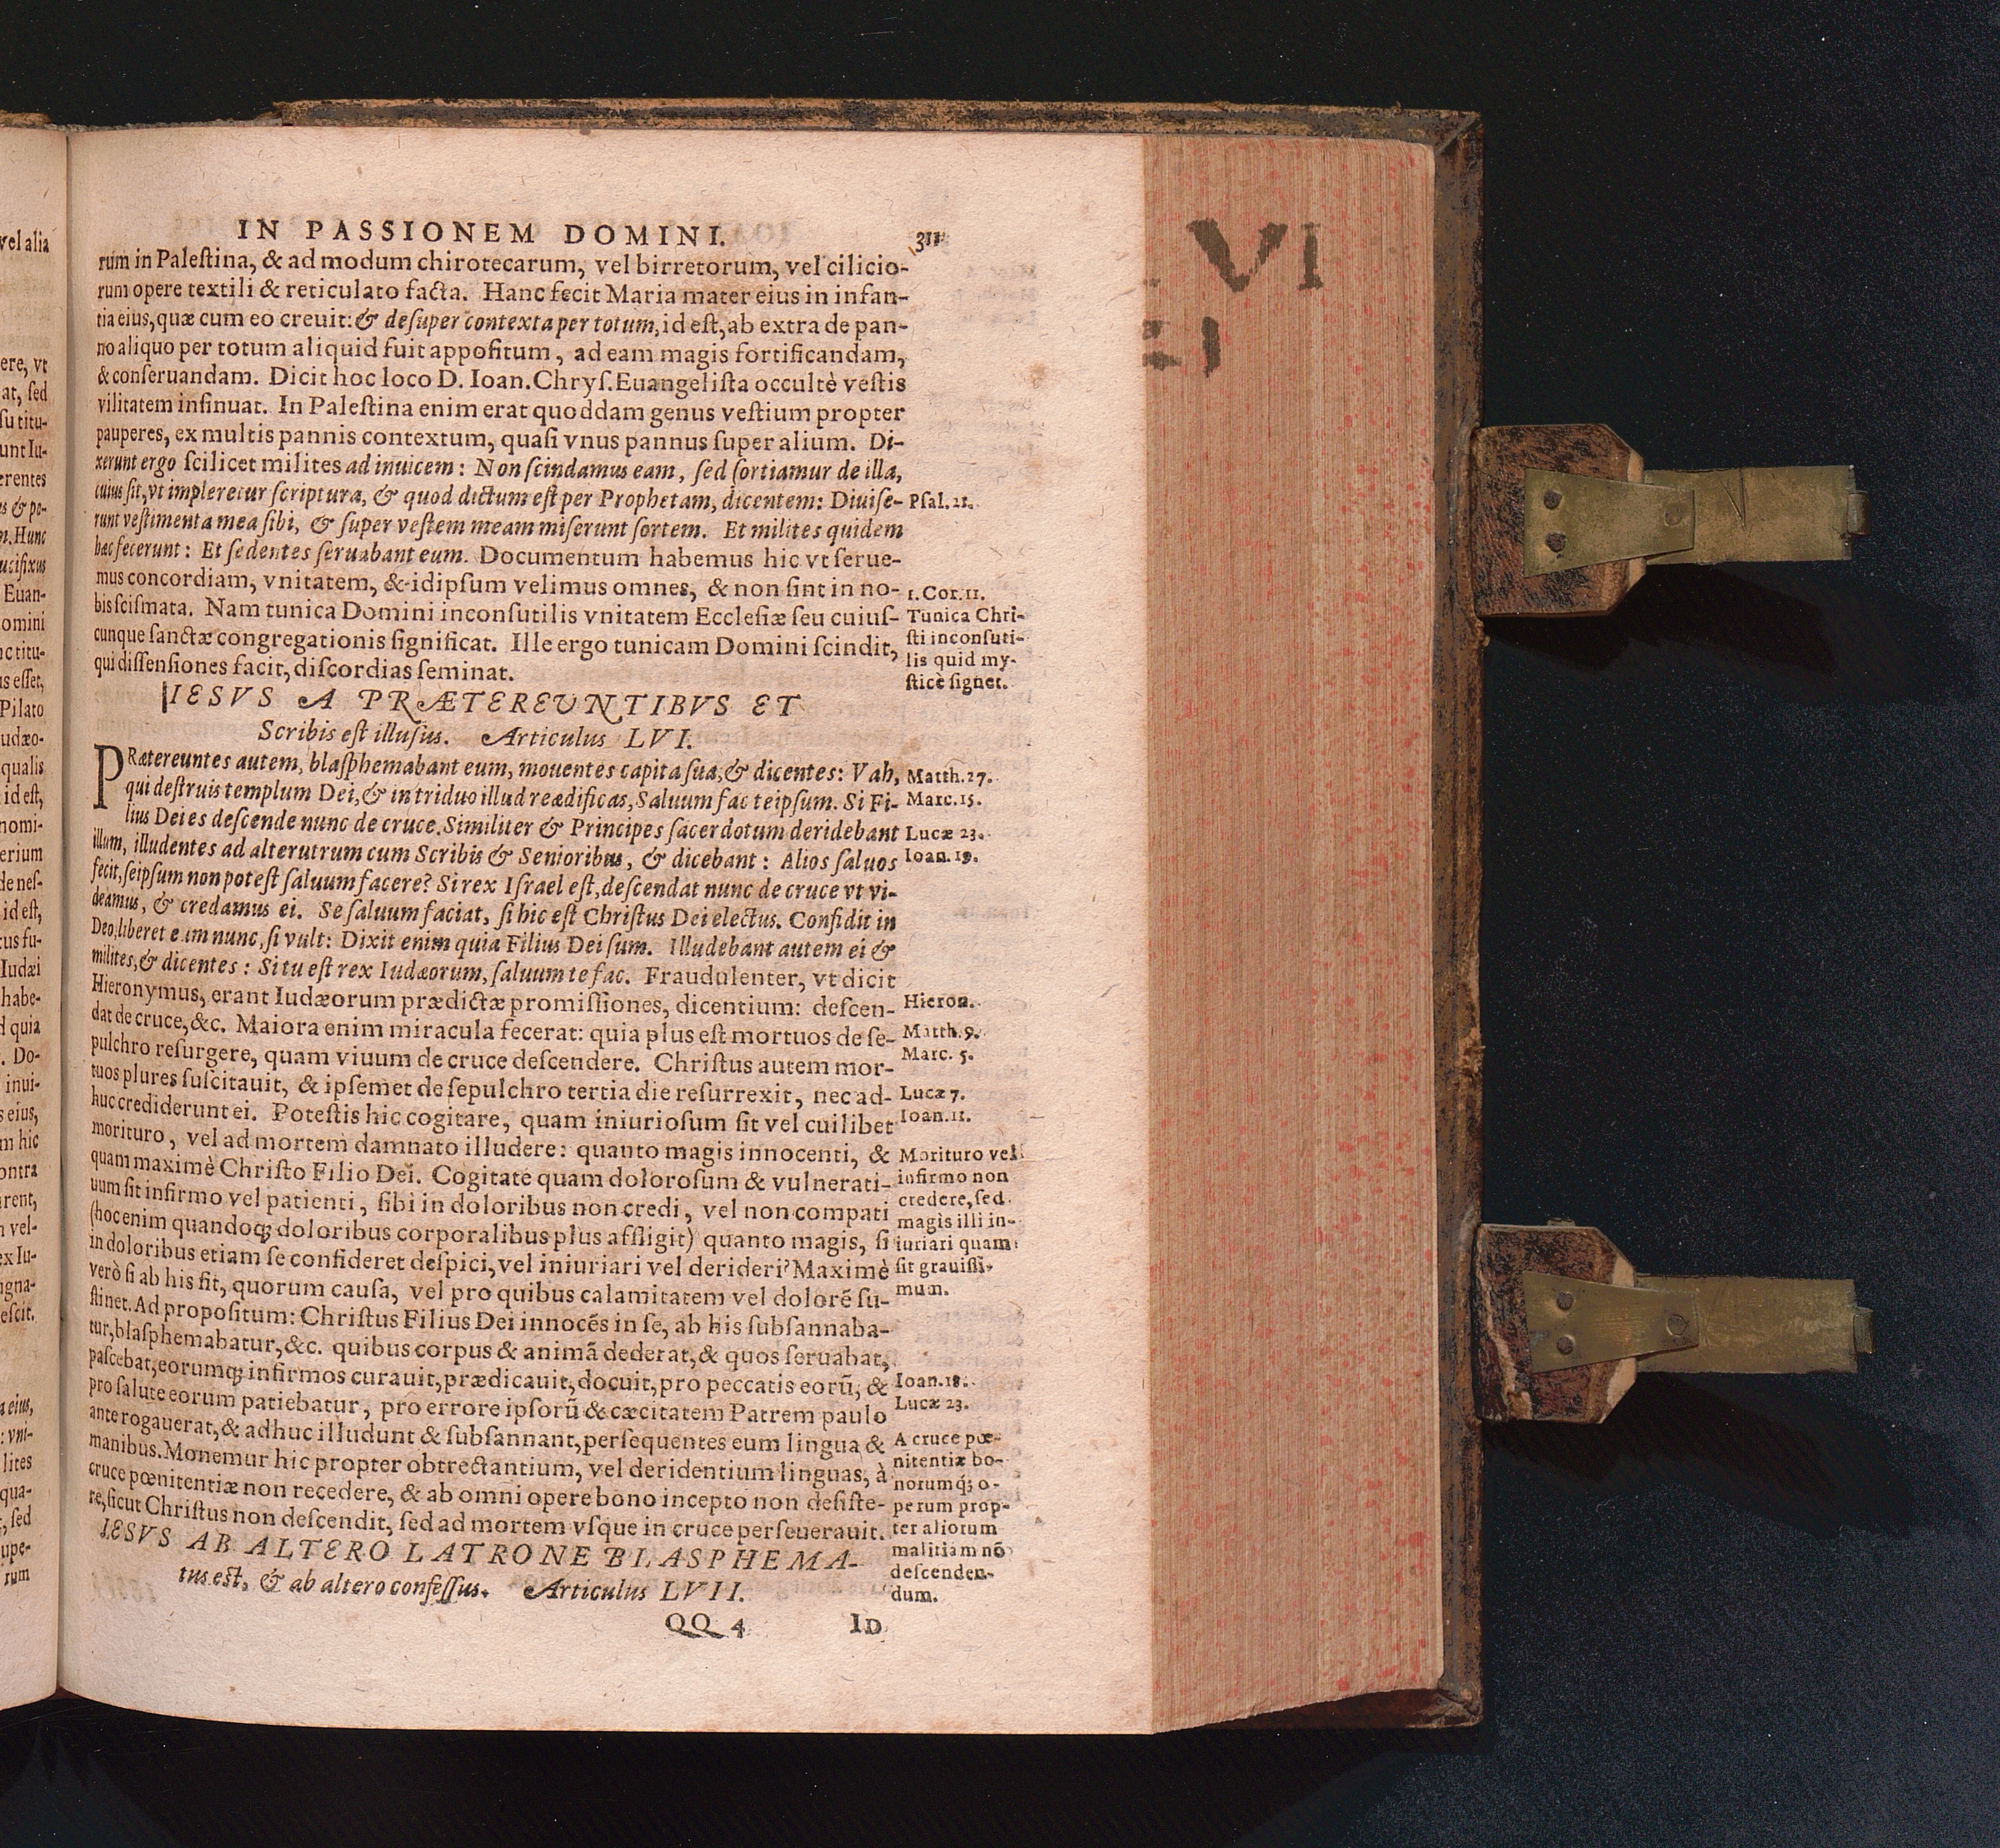 IN PASSIONEM DOMINI. 311
rum in Paleſtina, & ad modum chirotecarum, vel birretorum, vel cilicio-
rum opere textili & reticulato facta. Hanc fecit Maria mater eius in infan-
tia eius, quæ cum eo creuit: & deſuper contexta per totum, id eſt, ab extra de pan-
no aliquo per totum aliquid fuit appoſitum, ad eam magis fortificandam,
& conſeruandam. Dicit hoc loco D. Ioan. Chryſ. Euangeliſta occultè veſtis
vilitatem inſinuat. In Paleſtina enim erat quoddam genus veſtium propter
pauperes, ex multis pannis contextum, quaſi vnus pannus ſuper alium. Di-
xerunt ergo ſcilicet milites ad inuicem: Non ſcindamus eam, ſed ſortiamur de illa,
cuius ſit, vt impleretur ſcriptura, & quod dictum eſt per Prophetam, dicentem: Diuiſe-
runt veſtimenta mea ſibi, & ſuper veſtem meam miſerunt ſortem. Et milites quidem
hæc fecerunt: Et ſedentes ſeruabant eum. Documentum habemus hic vt ſerue-
mus concordiam, vnitatem, & idipſum velimus omnes, & non ſint in no-
bis ſciſmata. Nam tunica Domini inconſutilis vnitatem Eccleſiæ ſeu cuiuſ-
cunque ſanctæ congregationis ſignificat. Ille ergo tunicam Domini ſcindit,
qui diſſenſiones facit, diſcordias ſeminat.
Pſal. 21.
1. Cor. 11.
Tunica Chri-
ſti inconſuti-
lis quid my-
ſticè ſignet.
IESVS A PRÆTEREVNTIBVS ET
Scribis eſt illuſus. Articulus LVI.
PRætereuntes autem, blaſphemabant eum, mouentes capita ſua, & dicentes: Vah,
qui deſtruis templum Dei, & in triduo illud reædificas, Saluum fac teipſum. Si Fi-
lius Dei es deſcende nunc de cruce. Similiter & Principes ſacerdotum deridebant
illum, illudentes ad alterutrum cum Scribis & Senioribus, & dicebant: Alios ſaluos
fecit, ſeipſum non poteſt ſaluum facere? Si rex Iſrael eſt, deſcendat nunc de cruce vt vi-
deamus, & credamus ei. Se ſaluum faciat, ſi hic eſt Chriſtus Dei electus. Confidit in
Deo, liberet eum nunc, ſi vult: Dixit enim quia Filius Dei ſum. Illudebant autem ei &
milites, & dicentes: Si tu eſt rex Iudæorum, ſaluum te fac. Fraudulenter, vt dicit
Hieronymus, erant Iudæorum prædictæ promiſſiones, dicentium: deſcen-
dat de cruce, &c. Maiora enim miracula fecerat: quia plus eſt mortuos de ſe-
pulchro reſurgere, quam viuum de cruce deſcendere. Chriſtus autem mor-
tuos plures ſuſcitauit, & ipſemet de ſepulchro tertia die reſurrexit, nec ad-
huc crediderunt ei. Poteſtis hic cogitare, quam iniurioſum ſit vel cuilibet
morituro, vel ad mortem damnato illudere: quanto magis innocenti, &
quam maximè Chriſto Filio Dei. Cogitate quam doloroſum & vulnerati-
uum ſit infirmo vel patienti, ſibi in doloribus non credi, vel non compati
(hoc enim quandoq́; doloribus corporalibus plus affligit) quanto magis, ſi
in doloribus etiam ſe confideret deſpici, vel iniuriari vel derideri? Maximè
verò ſi ab his fit, quorum cauſa, vel pro quibus calamitatem vel dolorē ſu-
ſtinet. Ad propoſitum: Chriſtus Filius Dei innocēs in ſe, ab his ſubſannaba-
tur, blaſphemabatur, &c. quibus corpus & animā dederat, & quos ſeruabat,
paſcebat, eorumq́; infirmos curauit, prædicauit, docuit, pro peccatis eorū, &
pro ſalute eorum patiebatur, pro errore ipſorū & cæcitatem Patrem paulo
ante rogauerat, & adhuc illudunt & ſubſannant, perſequentes eum lingua &
manibus. Monemur hic propter obtrectantium, vel deridentium linguas, à
cruce pœnitentiæ non recedere, & ab omni opere bono incepto non deſiſte-
re, ſicut Chriſtus non deſcendit, ſed ad mortem vſque in cruce perſeuerauit.
Matth. 27.
Marc. 15.
Lucæ 23.
Ioan. 19.
Hieron.
Matth. 9.
Marc. 5.
Lucæ 7.
Ioan. 11.
Morituro vel
infirmo non
credere, ſed
magis illi in-
iuriari quam
ſit grauiſſi-
mum.
Ioan. 18.
Lucæ 23.
A cruce pœ-
nitentiæ bo-
norumq́; o-
perum prop-
ter aliorum
malitiam nō
deſcenden-
dum.
IESVS AB ALTERO LATRONE BLASPHEMA-
tus eſt, & ab altero confeſſus. Articulus LVII.
QQ 4 ID
vel alia
ere, vt
at, ſed
ſu titu-
unt Iu-
erentes
s & po-
m. Hunc
ucifixus
Euan-
omini
nc titu-
us eſſet,
Pilato
udæo-
qualis
id eſt,
nomi-
erium
de neſ-
id eſt,
tus fu-
Iudæi
habe-
d quia
. Do-
inui-
s eius,
m hic
ontra
rent,
vel-
ex Iu-
igna-
eſcit.
a eius,
: vni-
lites
qua-
, ſed
upe-
rum
VI